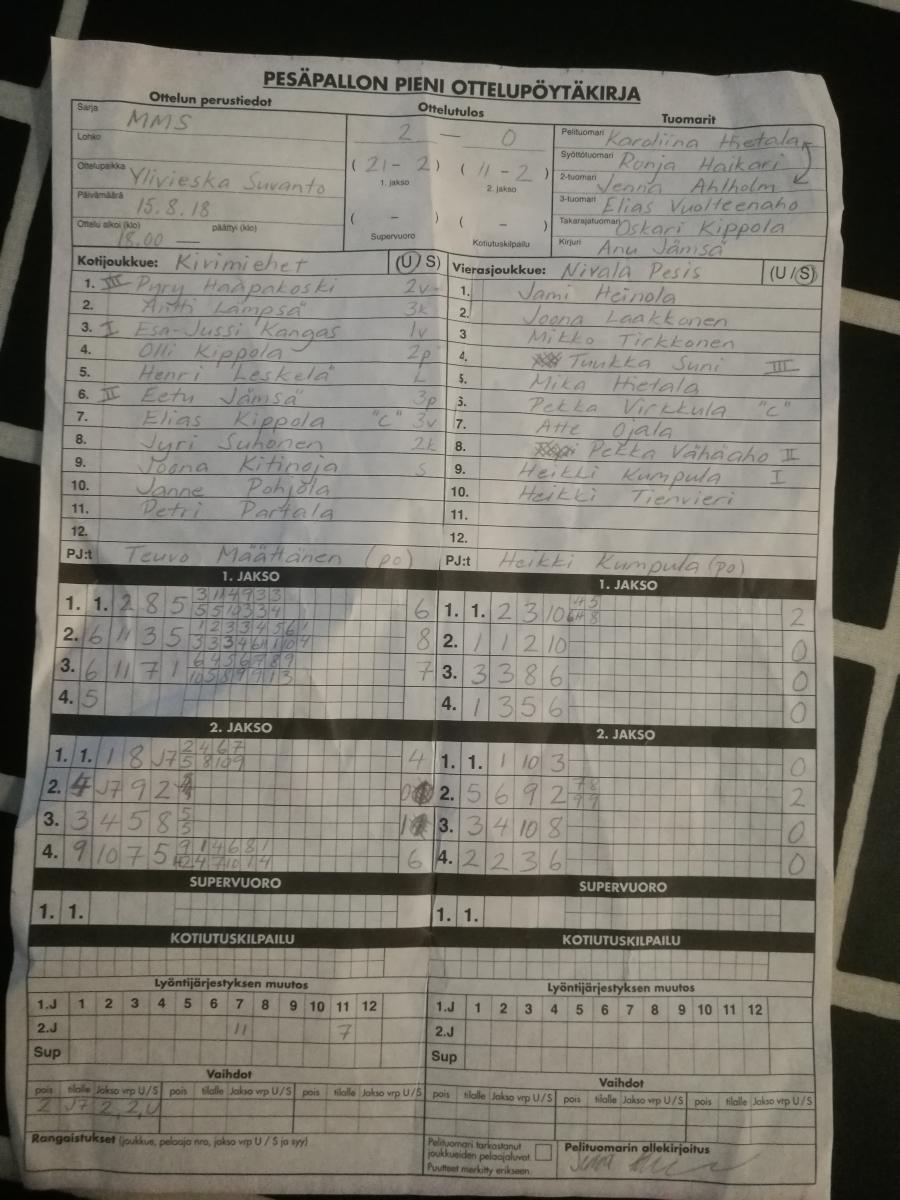 PESÄPALLON PIENI OTTELUPÖYTÄKIRJA
Ottelun perustiedot Ottelutulos Tuomarit
Sarja MMS
Lohko
Ottelupaikka Ylivieska Suvanto
Päivämäärä 15.8.18
Ottelu alkoi (klo) 18.00 — päättyi (klo)
2 — 0
( 21 - 2 ) ( 11 - 2 )
1. jakso 2. jakso
( - ) ( - )
Supervuoro Kotiutuskilpailu
Pelituomari Karoliina Hietala
Syöttötuomari Ronja Haikari
2-tuomari Jenna Ahlholm
3-tuomari Elias Vuolteenaho
Takarajatuomari Oskari Kippola
Kirjuri Anu Jämsä
Kotijoukkue: Kirimiehet (U/S)
1. III Pyry Haapakoski 2v
2. Antti Lämpsä 3k
3. I Esa-Jussi Kangas 1v
4. Olli Kippola 2p
5. Henri Leskelä L
6. II Eetu Jämsä 3p
7. Elias Kippola "C" 3v
8. Jyri Suhonen 2k
9. Joona Kitinoja S
10. Janne Pohjola
11. Petri Partala
12.
PJ:t Teuvo Määttänen (po)
Vierasjoukkue: Nivala Pesis (U/S)
1. Jami Heinola
2. Joona Laakkonen
3 Mikko Tirkkonen
4. Tuukka Suni III
5. Mika Hietala
6. Pekka Virkkula "C"
7. Atte Ojala
8. Pekka Vähäaho II
9. Heikki Kumpula I
10. Heikki Tienvieri
11.
12.
PJ:t Heikki Kumpula (po)
1. JAKSO
1. 1. 2 8 5 6
2. 6 11 3 5 8
3. 6 11 7 1 7
4. 5
1. JAKSO
1. 1. 2 3 10 2
2. 1 1 2 10 0
3. 3 3 8 6 0
4. 1 3 5 6 0
2. JAKSO
1. 1. 1 8 J7 2 4 6 7 4
5 8 10 9
2. 4 J7 9 2 0
3. 3 4 5 8 5 1
5
4. 9 10 7 5 9 1 4 6 8 1 6
2. JAKSO
1. 1. 1 10 3 0
2. 5 6 9 2 7 8 2
9 9
3. 3 4 10 8 0
4. 2 2 3 6 0
SUPERVUORO SUPERVUORO
1. 1. 1. 1.
KOTIUTUSKILPAILU KOTIUTUSKILPAILU
Lyöntijärjestyksen muutos
1.J 1 2 3 4 5 6 7 8 9 10 11 12
2.J 11 7
Sup
Lyöntijärjestyksen muutos
1.J 1 2 3 4 5 6 7 8 9 10 11 12
2.J
Sup
Vaihdot
pois tilalle Jakso vrp U/S pois tilalle Jakso vrp U/S pois tilalle Jakso vrp U/S
2 J7 2, 2, U
Vaihdot
pois tilalle Jakso vrp U/S pois tilalle Jakso vrp U/S pois tilalle Jakso vrp U/S
Rangaistukset (joukkue, pelaaja nro, jakso vrp U / S ja syy)
Pelituomari tarkastanut
joukkueiden pelaajaluvat
Puutteet merkitty erikseen
Pelituomarin allekirjoitus